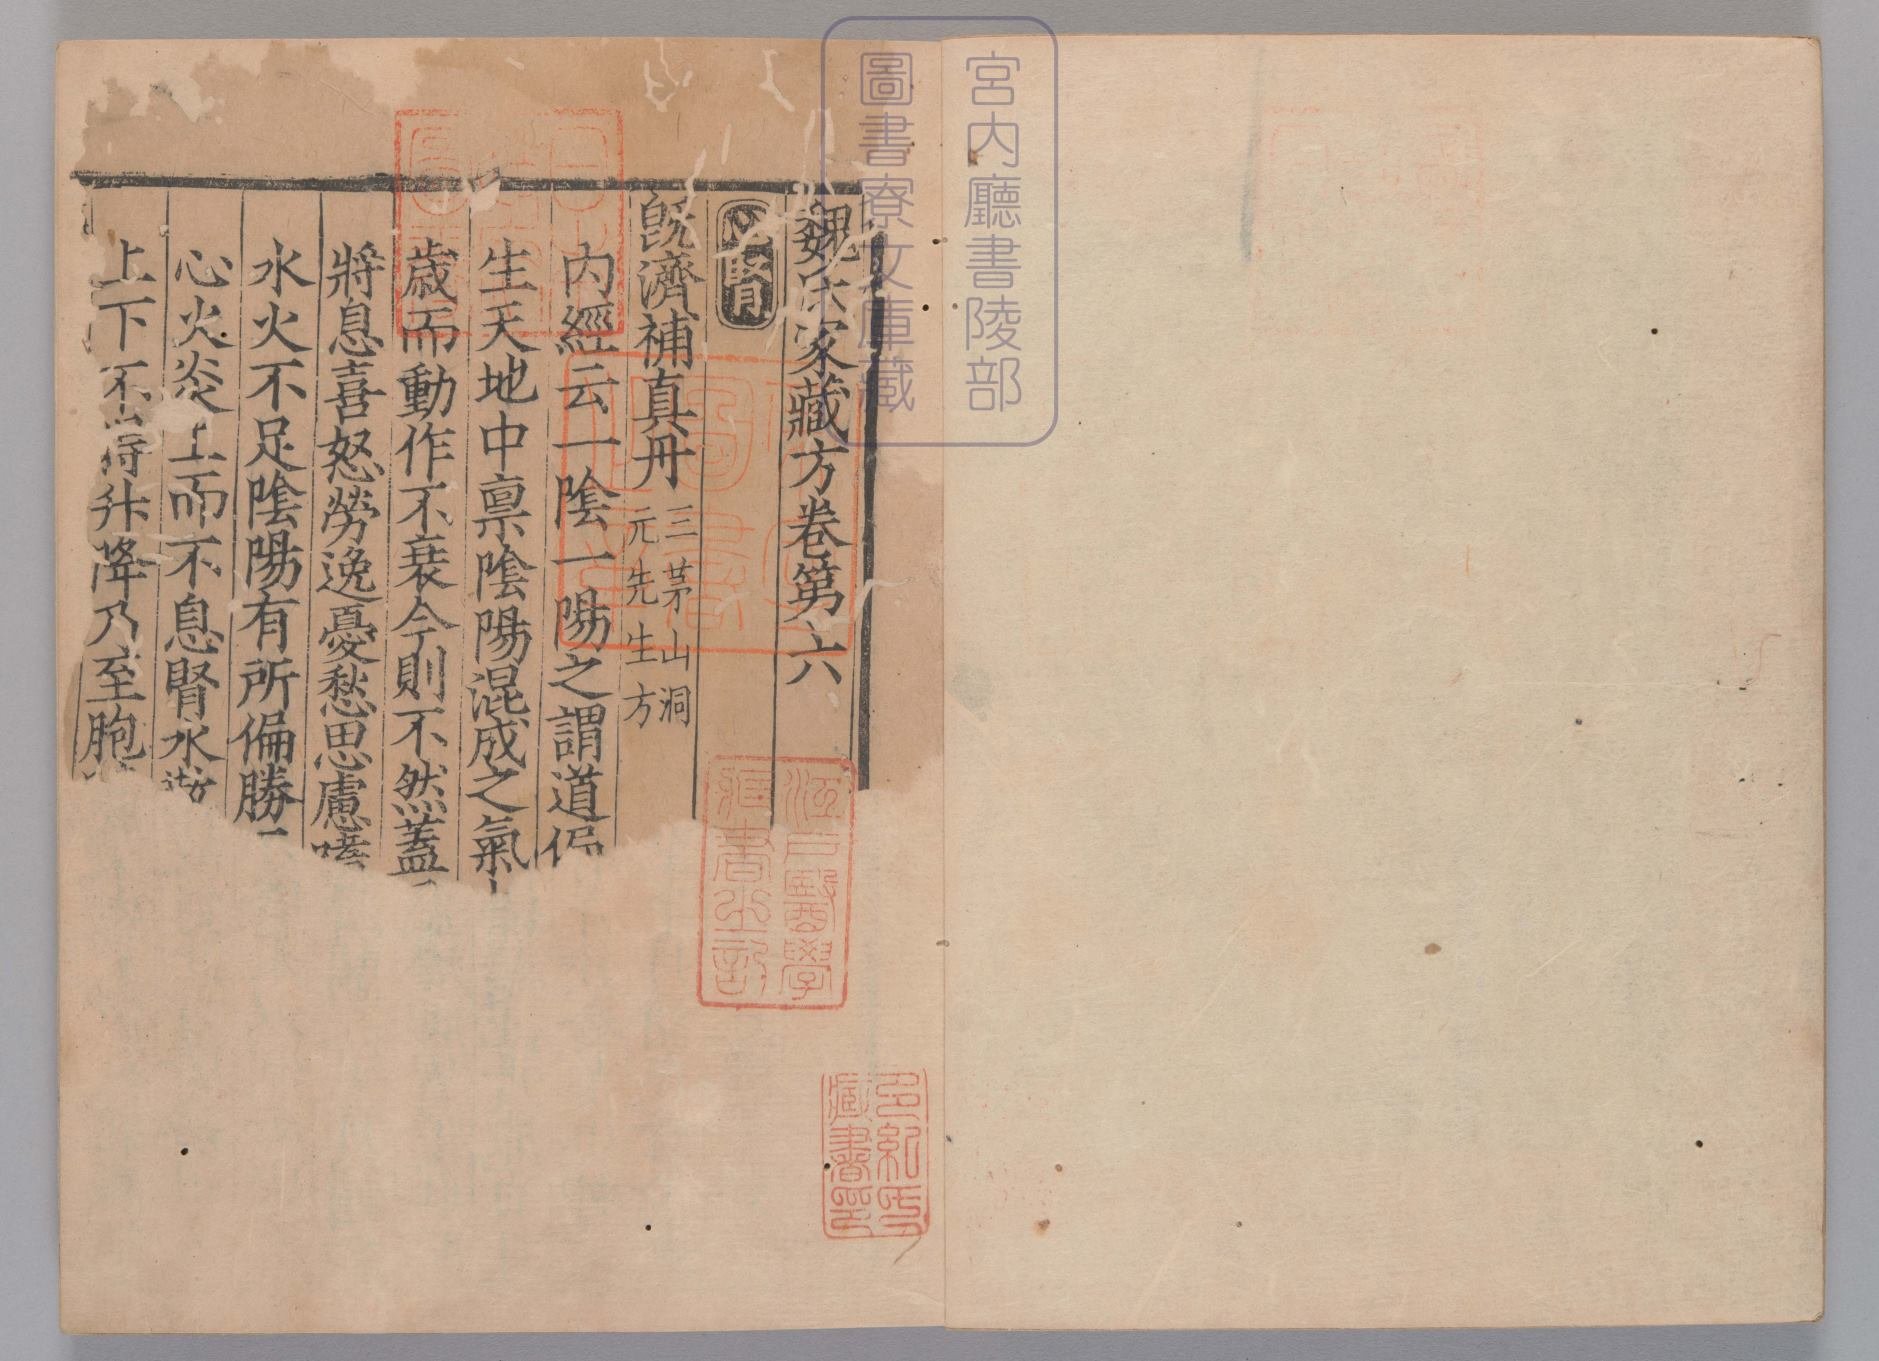 宮内廳書陵部
圖書寮文庫藏
魏氏家藏方卷第六
補腎
既濟補真丹三茅山洞
元先生方
內經云一陰一陽之謂道偏
生天地中禀陰陽混成之氣
歲而動作不衰今則不然蓋
將息喜怒勞逸憂愁思慮嗜
水火不足陰陽有所偏勝
心火炎上而不息腎水
上下不得升降乃至胞
江戶醫學
藏書之記
多紀氏
藏書印